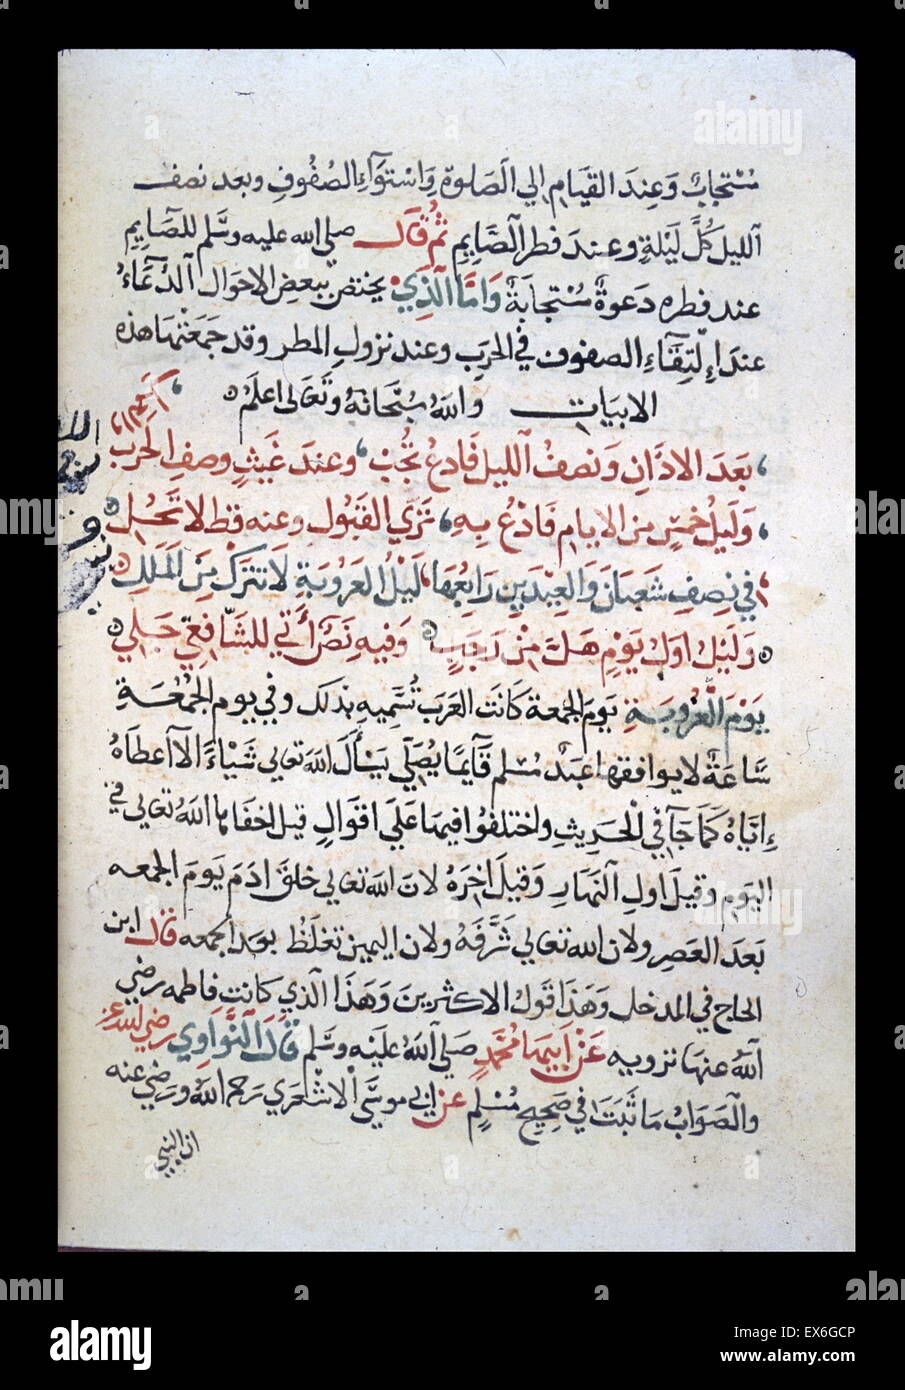 مُسْتَجابٌ وَعِندَ القيَامِ الي الصَلوة وَاسْتوَآءِ الصُفُوفِ وبعد نصف
الليلِ كُلَّ لَيْلةٍ وعندَ فطرِ الصَّايمِ ثُمَّ قَالَ صلى الله عليه وسَّلم للصَّايمِ
عند فطره دَعوةٌ مُسْتجابَةٌ وَامَّا الَّذِي يختصّ ببعضِ الاحوال الدُعَآءُ
عندَ اِلْتِقَآءِ الصفوف في الحَرب وعند نزولِ المطر وقد جمَعَتْهَا هذه
الابيات واللهُ سُبْحَانَهُ وتَعَالى اعلمُ
بَعدَ الاذَانِ وَنصفُ الليلِ فَادعُ تُجَبْ وعندَ غَيثٍ وصفِ الحرب
وَليلُ خمسٍ من الايامِ فَادْعُ بِهِ تَرَي القَبُول وعنه قط لا تَحُل
في نِصفِ شَعبَان وَالعِيدَينِ رَابعُهَا لَيْلُ العَرُوبَةِ لا تترك مِنَ المَلَلِ
وَلَيلُ اولُ يَوْمٍ هَلَّ مِنْ رَجَبٍ وَفيهِ نَصٌّ أتي للشَّافعيّ جَلي
يَوْمَ الْعَرُوبَةِ يَوم الجمعَة كَانَت العَرَب تُسَمِّيهِ بذلك وفي يوم الجُمُعَةِ
سَاعَةٌ لا يوافقها عَبْد مُسْلم قَآيمًا يُصَلّي يَسْألَ اللهَ تعالي شَيْاءً الا اَعطَاهُ
اِيَّاهُ كَمَا جَآ في الحَدِيثِ واختلفُوا فيهَا عَلَي اقوَالٍ قيل اخفَاهَا اللهُ تعَالي في
اليَومِ وقيلَ اولِ النهَارِ وَقيلَ آخِرَهُ لانَّ اللهَ تعَالي خلقَ ادَمَ يَومَ الجمعه
بَعدَ العَصرِ ولان الله تعالي شَرَّفَهُ ولان اليمين تغلظُ بعد الجمعه قال ابن
الحاج في المدخل وَهَذَا قولُ الاكثرينَ وَهَذَا الَّذي كانت فاطمه رضي
اللهُ عنها ترويه عَنْ ابِيهَا مُحَمَّدٍ صَلي اللهُ عَلَيْه وسَلّم قَالَ النَّوَاوِي رضي الله عنه
والصَوَابُ مَا ثبَتَ في صَحِيحِ مُسْلِمٍ عَنْ ابي موسَى الاشْعَري رَحمَ اللهُ ورَضيَ عنه
ان النبي
alamy
alamy
alamy
alamy stock photo
EX6GCP
www.alamy.com